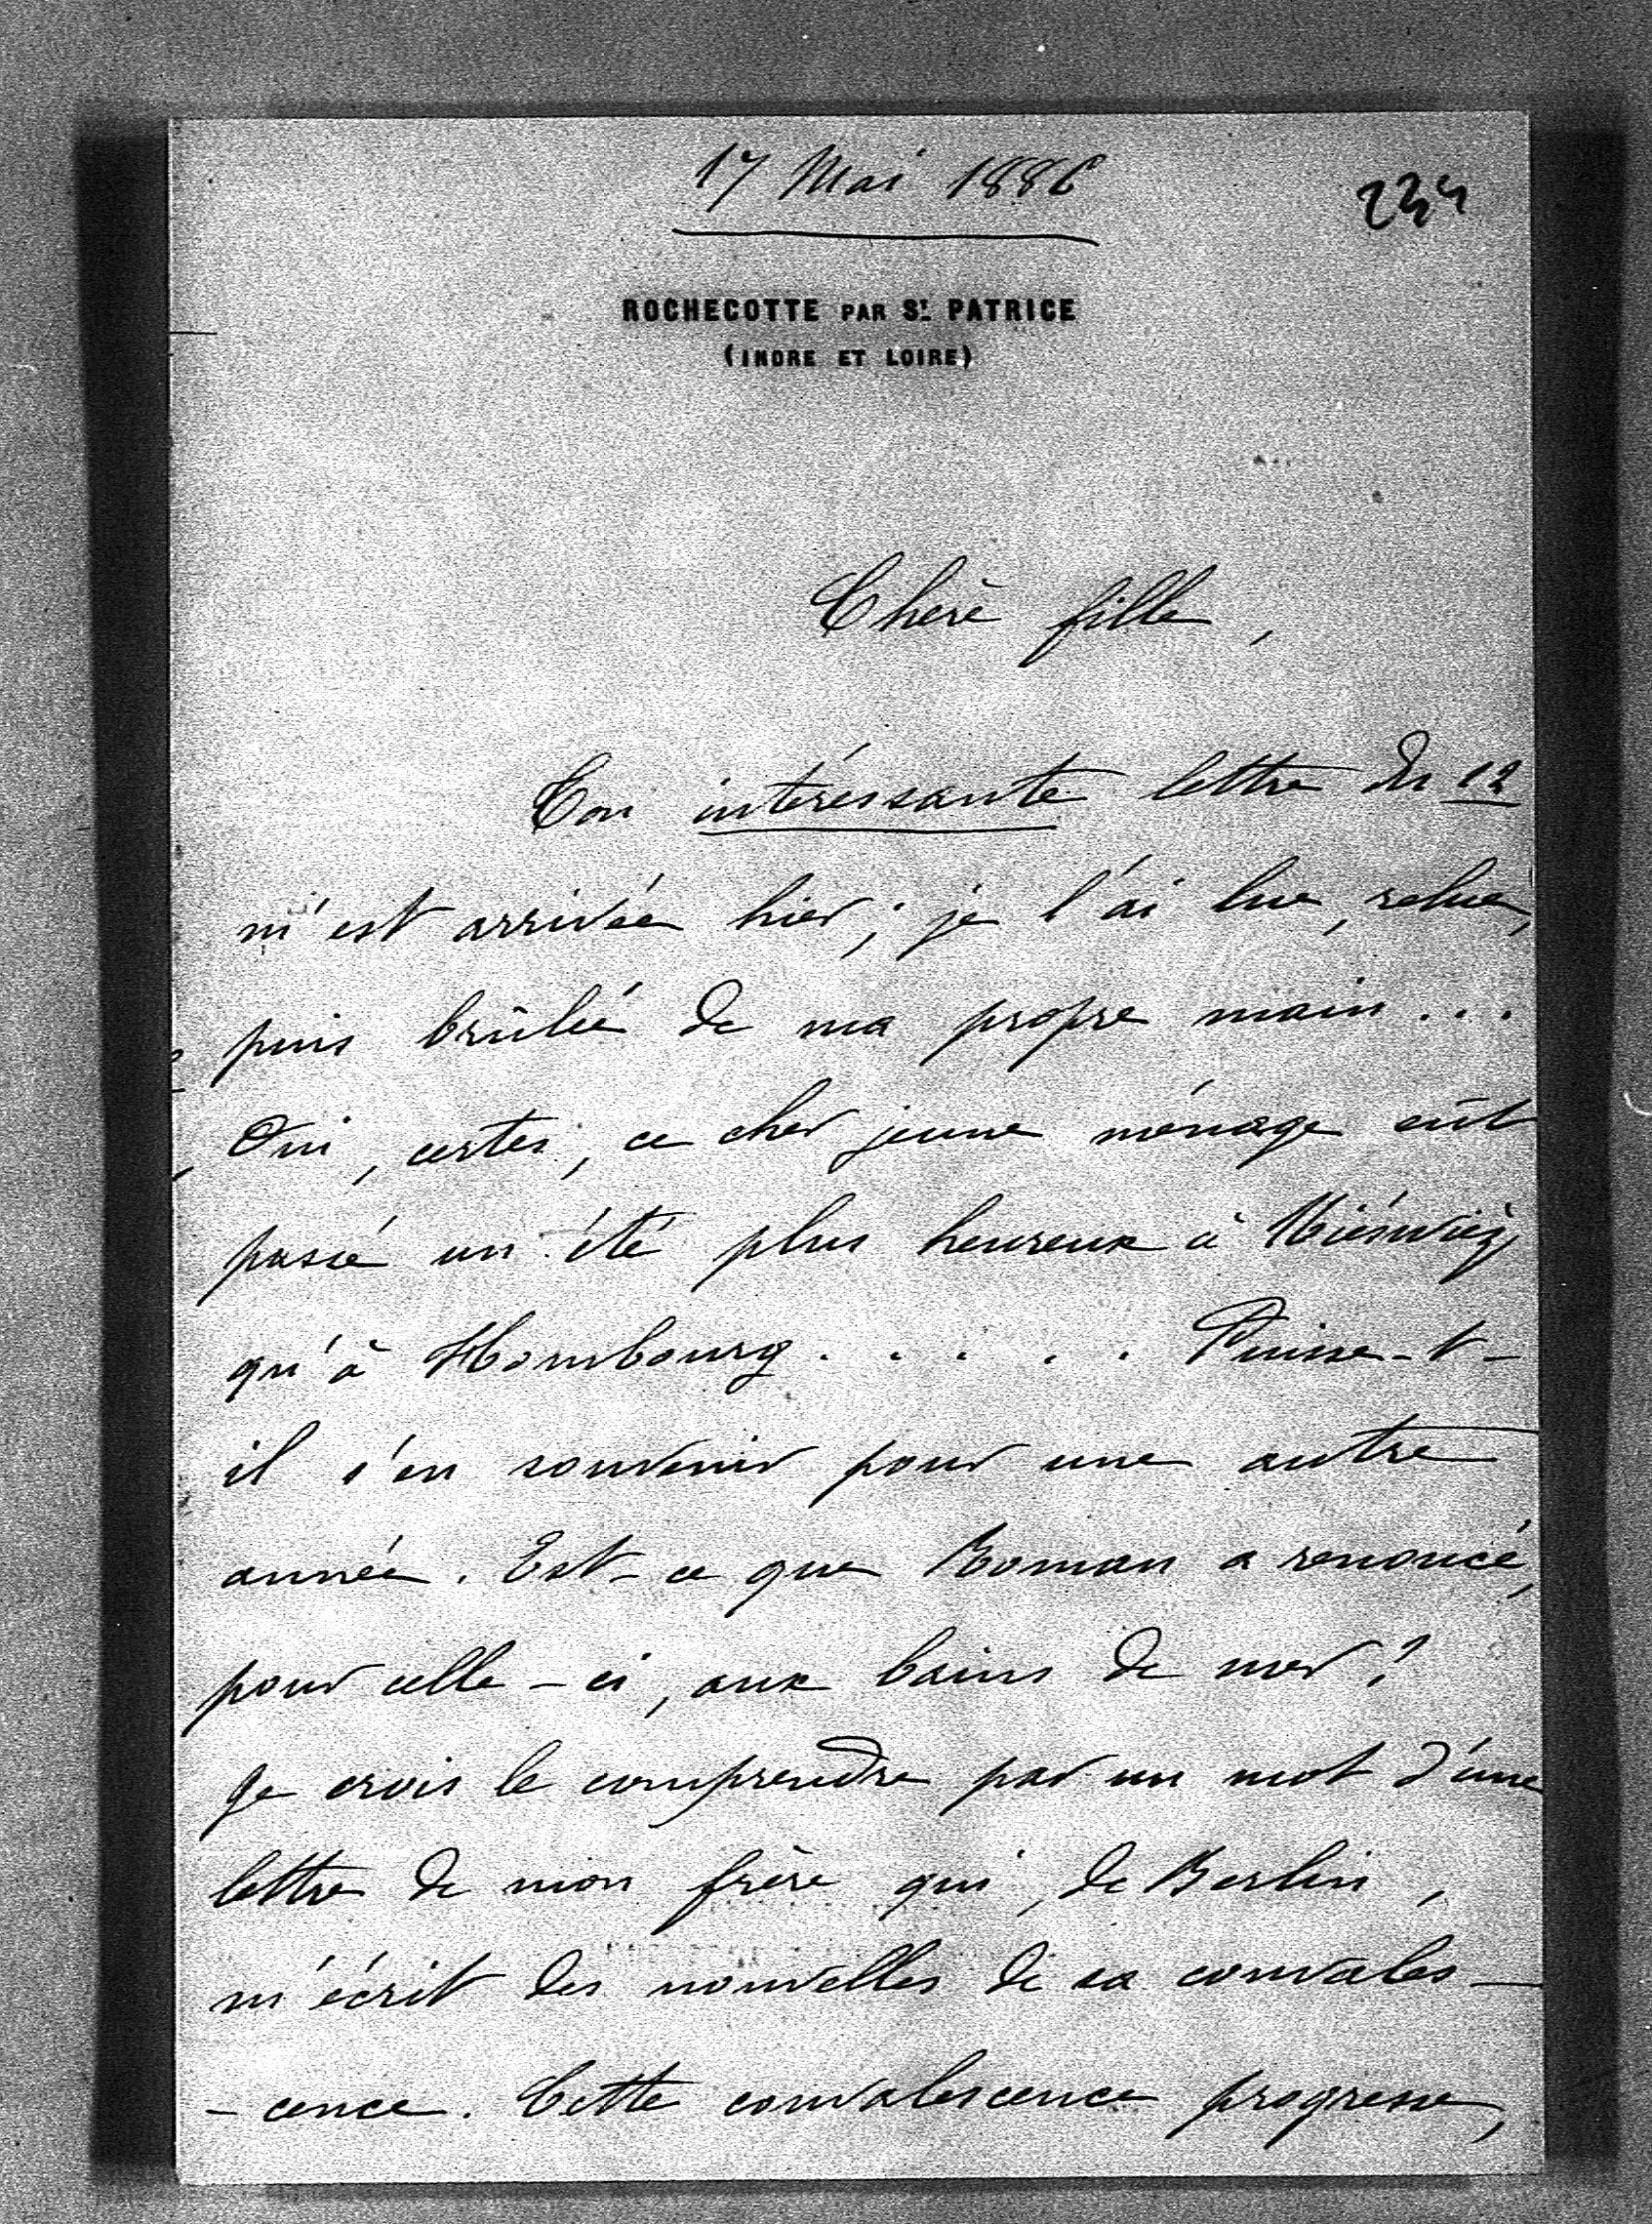 17 Mai 1886
234
ROCHECOTTE PAR ST PATRICE
(INDRE ET LOIRE)
Chère fille,
Ton intéressante lettre du 12
m'est arrivée hier; je l'ai lue, relue,
puis brûlée de ma propre main...
Oui, certes, ce cher jeune ménage eût
passé un été plus heureux à Niéswiéz
qu'à Hombourg..... Puisse-t-
il s'en souvenir pour une autre
année. Est-ce que Roman a renoncé,
pour celle-ci, aux bains de mer?
Je crois le comprendre par un mot d'une
lettre de mon frère qui, de Berlin,
m'écrit des nouvelles de sa convales-
-cence. Cette convalescence progresse,